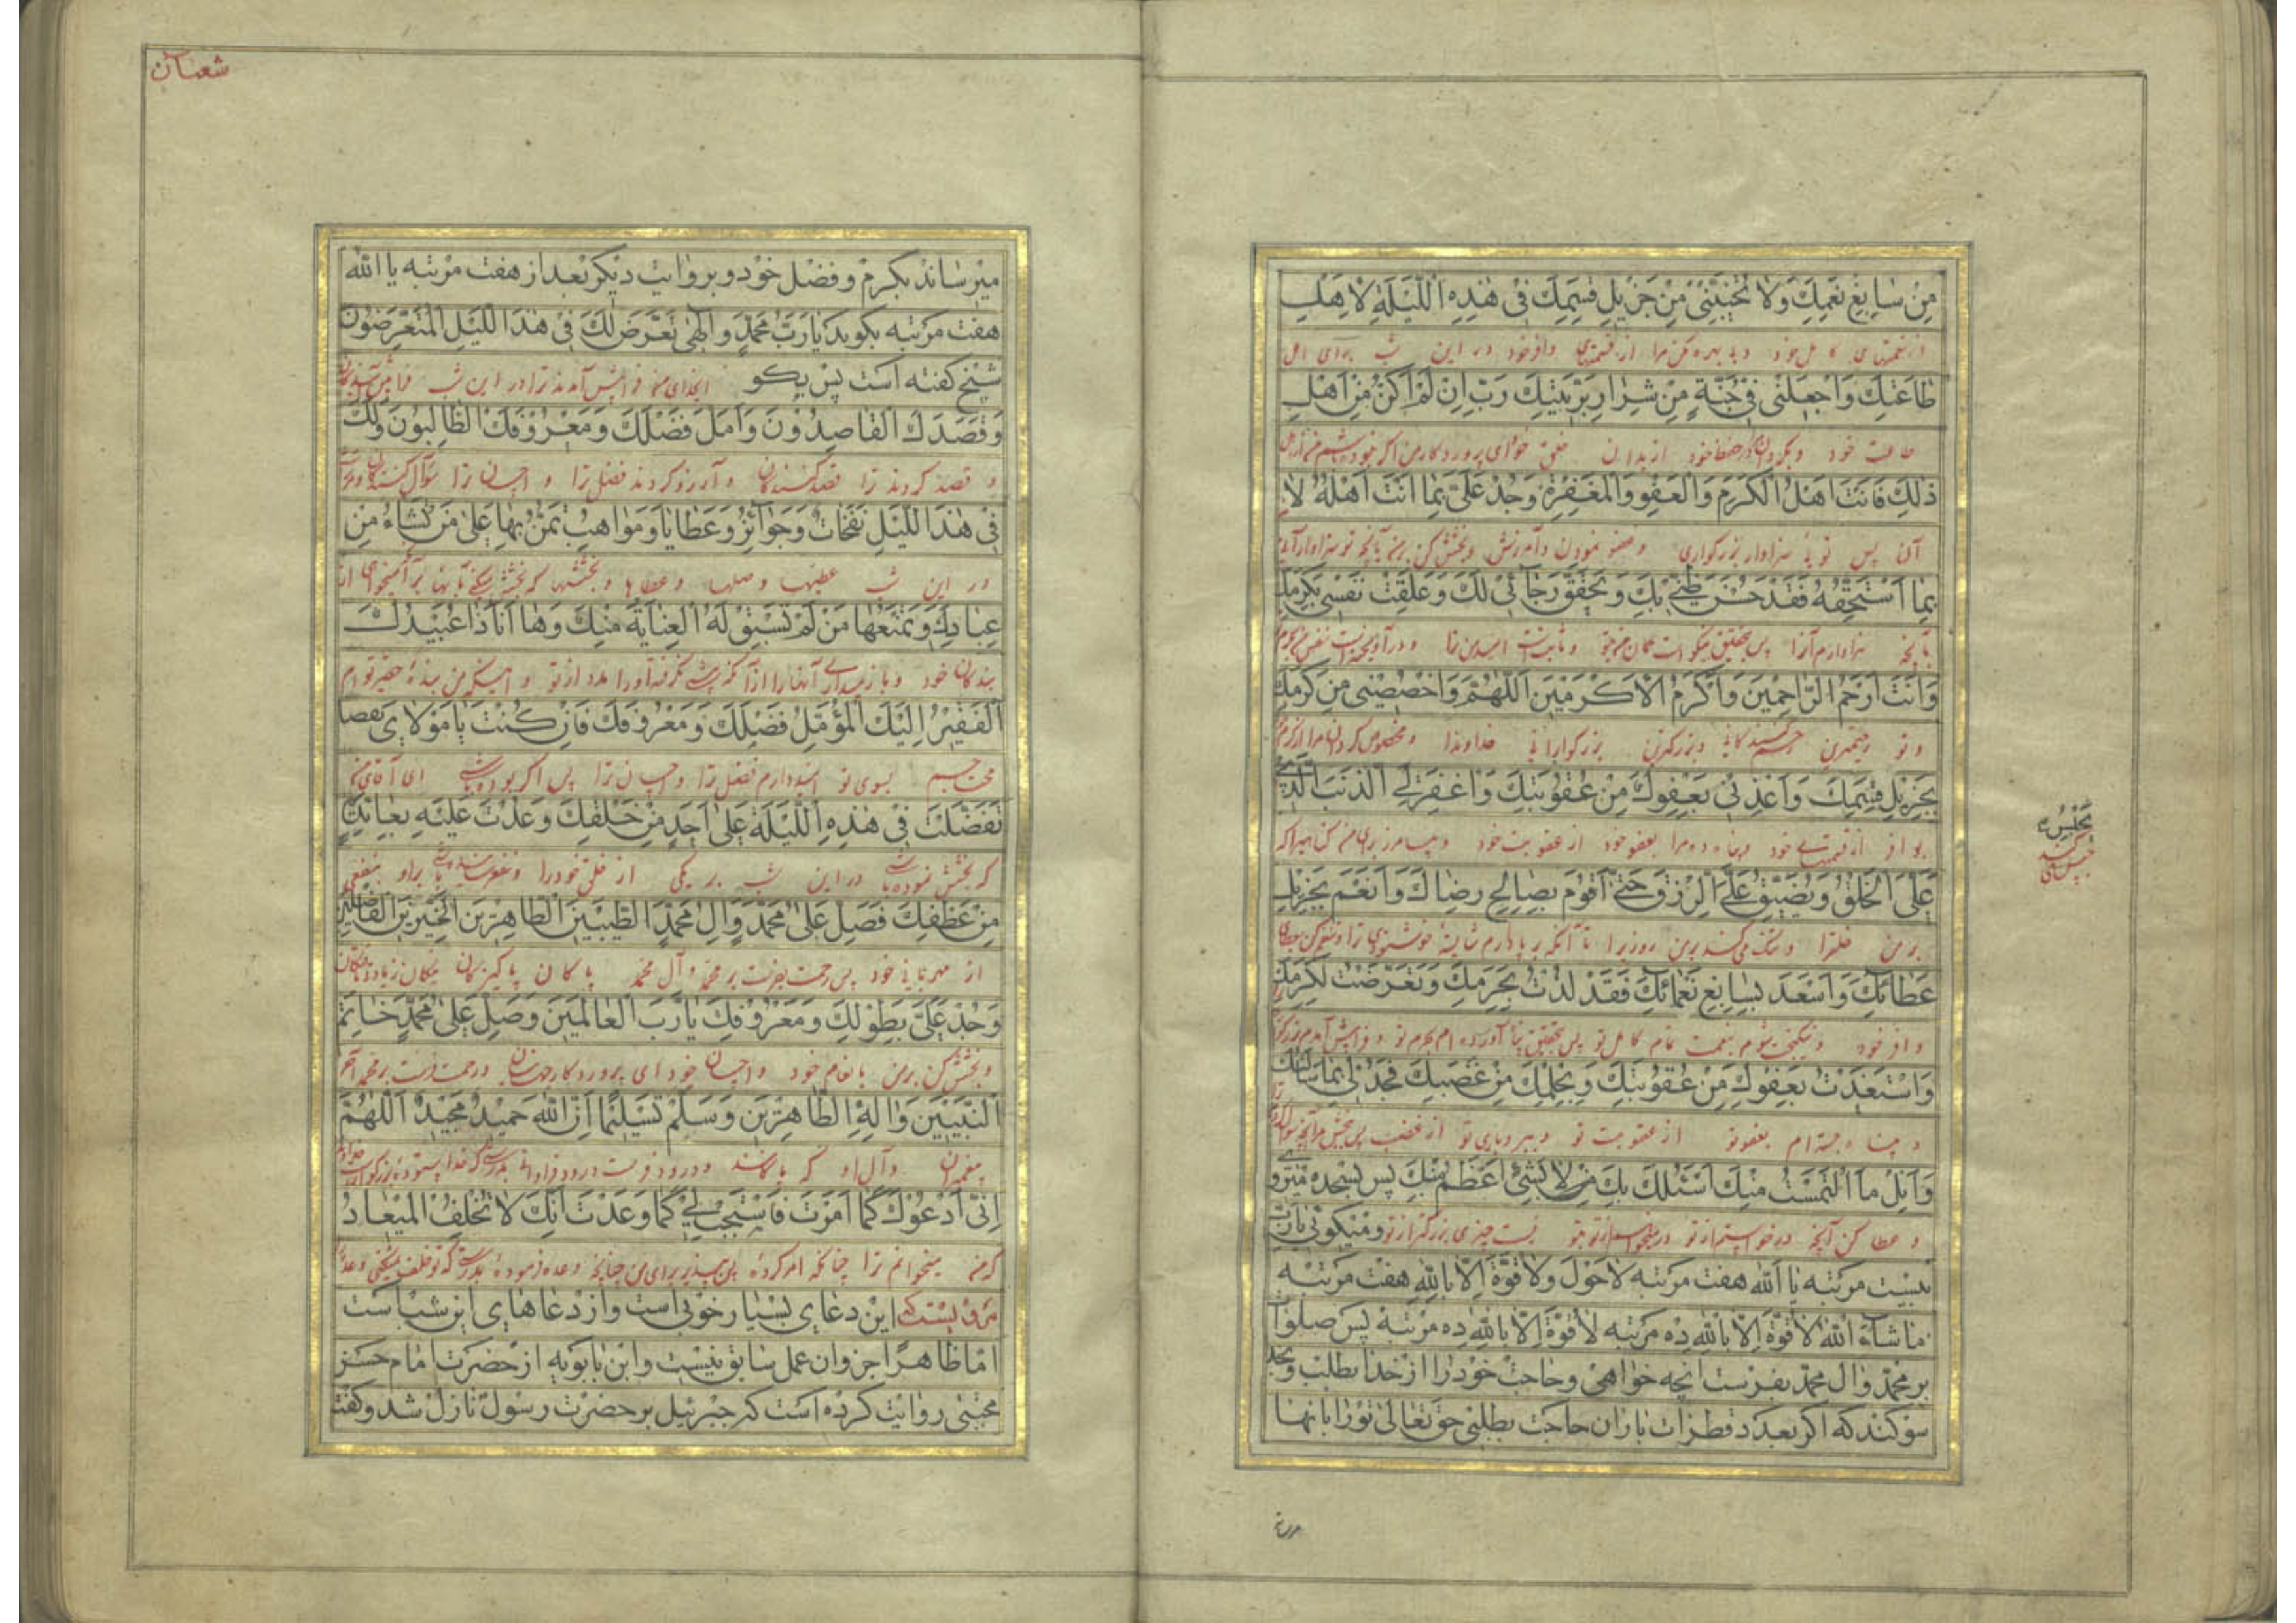 مِنْ سَابِغِ نِعَمِكَ وَلَا تُخَيِّبْنِي مِنْ جَزِيلِ قِسَمِكَ فِي هٰذِهِ اللَّيْلَةِ لِاَهْلِ
از نعمتهای کامل خود و بی بهره مکن مرا از قسمتهای وافر خود در این شب برای اهل
طَاعَتِكَ وَاجْعَلْنِي فِي جُنَّةٍ مِنْ شِرَارِ بَرِيَّتِكَ رَبِّ اِنْ لَمْ اَكُنْ مِنْ اَهْلِ
طاعت خود و بگردان مرا در حفظ خود از بدان خلق خود ای پروردگار من اگر نبوده باشم من از اهل
ذٰلِكَ فَاَنْتَ اَهْلُ الْكَرَمِ وَالْعَفْوِ وَالْمَغْفِرَةِ وَجُدْ عَلَيَّ بِمَا اَنْتَ اَهْلُهُ لَا
آن پس توئی سزاوار بزرگواری و عفو نمودن و آمرزش و بخشش کن بر من بآنچه تو سزاوار آنی
بِمَا اَسْتَحِقُّهُ فَقَدْ حَسُنَ ظَنِّي بِكَ وَتَحَقَّقَ رَجَائِي لَكَ وَعَلِقَتْ نَفْسِي بِكَرَمِكَ
بآنچه سزاوارم آنرا پس بتحقیق نیکو است گمان من بتو و ثابت است امید من ترا و درآویخته است نفس من بکرم
وَاَنْتَ اَرْحَمُ الرَّاحِمِينَ وَاَكْرَمُ الْاَكْرَمِينَ اَللّٰهُمَّ وَاخْصُصْنِي مِنْ كَرَمِكَ
و تو رحیمترین رحم کنندگانی و بزرگترین بزرگوارانی خداوندا و مخصوص گردان مرا از کرم
بِجَزِيلِ قِسَمِكَ وَاَعِذْنِي بِعَفْوِكَ مِنْ عُقُوبَتِكَ وَاغْفِرْ لِيَ الذَّنْبَ الَّذِي
بوافر از قسمتهای خود و پناه ده مرا بعفو خود از عقوبت خود و بیامرز برای من گناهیرا که
يَحْبِسُ
عَلَيَّ الْخُلُقَ وَيُضَيِّقُ عَلَيَّ الرِّزْقَ حَتّٰى اَقُومَ بِصَالِحِ رِضَاكَ وَاَنْعَمَ بِجَزِيلِ
بر من خلقرا و تنگ میکند بر من روزیرا تا آنکه برپا دارم شایستهٔ خوشنودی ترا و تنعم کنم بعطای
عَطَائِكَ وَاَسْعَدَ بِسَابِغِ نَعْمَائِكَ فَقَدْ لُذْتُ بِحَرَمِكَ وَتَعَرَّضْتُ لِكَرَمِكَ
وافر خود و نیکبخت شوم بنعمت تمام کامل تو پس بتحقیق پناه آورده ام بحرم تو و فرا پیش آمدم بزرگی
وَاسْتَعَذْتُ بِعَفْوِكَ مِنْ عُقُوبَتِكَ وَبِحِلْمِكَ مِنْ غَضَبِكَ فَجُدْ لِي بِمَا سَأَلْتُكَ
و پناه جسته ام بعفو تو از عقوبت تو و ببردباری تو از غضب پس ببخش مرا آنچه سؤال کردم
وَاَنِلْ مَا الْتَمَسْتُ مِنْكَ اَسْئَلُكَ بِكَ لَا بِشَيْءٍ اَعْظَمَ مِنْكَ پس بسجده میروی
و عطا کن آنچه درخواستم از تو و میخواهم از تو بتو نیست چیزی بزرگتر از تو و میگوئی یا رب
بیست مرتبه یا الله هفت مرتبه لا حول ولا قوة الا بالله هفت مرتبه
ما شاء الله لا قوة الا بالله ده مرتبه لا قوة الا بالله ده مرتبه پس صلوات
بر محمد وال محمد بفرست انچه خواهی وحاجت خود را از خدا بطلب
سوکند که اکر بعدد قطرات باران حاجت بطلبی حق تعالی تو را بانها
میرساند
شعبان
میرساند بکرم و فضل خود و بروایت دیکر بعد از هفت مرتبه یا الله
هفت مرتبه بکوید یا رب محمد و اِلٰهِي تَعَرَّضَ لَكَ فِي هٰذَا اللَّيْلِ الْمُتَعَرِّضُونَ
شیخ کفته است پس بکو ایخدای من فرا پیش آمدند ترا در این شب فرا پیش آیندگان
وَقَصَدَكَ الْقَاصِدُونَ وَاَمَّلَ فَضْلَكَ وَمَعْرُوفَكَ الطَّالِبُونَ وَلَكَ
و قصد کردند ترا قصد کنندگان و آرزو کردند فضل ترا و احسان ترا سؤال کنندگان و مر تراست
فِي هٰذَا اللَّيْلِ نَفَحَاتٌ وَجَوَائِزُ وَعَطَايَا وَمَوَاهِبُ تَمُنُّ بِهَا عَلٰى مَنْ تَشَاءُ مِنْ
در این شب عطیها و صلها و عطاها و بخششها که بخشش میکنی بآنها بر آنکه میخواهی از
عِبَادِكَ وَتَمْنَعُهَا مَنْ لَمْ تَسْبِقْ لَهُ الْعِنَايَةُ مِنْكَ وَهَا اَنَا ذَا عُبَيْدُكَ
بندگان خود و باز میداری آنها را از آنکه پیشی نگرفته او را مدد از تو و اینکه من بندهٔ حقیر توام
اَلْفَقِيرُ اِلَيْكَ الْمُؤَمِّلُ فَضْلَكَ وَمَعْرُوفَكَ فَاِنْ كُنْتَ يَا مَوْلَايَ
محتاجم بسوی تو امیدوارم فضل ترا و احسان ترا پس اگر بوده باشی ای آقای من
تَفَضَّلْتَ فِي هٰذِهِ اللَّيْلَةِ عَلٰى اَحَدٍ مِنْ خَلْقِكَ وَعُدْتَ عَلَيْهِ بِعَائِدَةٍ
که بخشش نموده باشی در این شب بر یکی از خلق خود را و نفع رسانیده باشی براو بنفعی
مِنْ عَطْفِكَ فَصَلِّ عَلٰى مُحَمَّدٍ وَاٰلِ مُحَمَّدٍ الطَّيِّبِينَ الطَّاهِرِينَ الْخَيِّرِينَ الْفَاضِلِينَ
از مهربانی خود پس رحمت بفرست بر محمد و آل محمد پاکان پاکیزگان نیکان
وَجُدْ عَلَيَّ بِطَوْلِكَ وَمَعْرُوفِكَ يَا رَبَّ الْعَالَمِينَ وَصَلِّ عَلٰى مُحَمَّدٍ خَاتَمِ
و بخشش کن بر من بانعام خود و احسان خود ای پروردگار جهانیان و رحمت فرست بر محمد آخر
النَّبِيِّينَ وَاٰلِهِ الطَّاهِرِينَ وَسَلِّمْ تَسْلِيمًا اِنَّ اللّٰهَ حَمِيدٌ مَجِيدٌ اَللّٰهُمَّ
پیغمبران و آل او که پاکانند و درود فرست درود فراوانی بدرستیکه خدا ستوده بزرگوار است خداوندا
اِنِّي اَدْعُوكَ كَمَا اَمَرْتَ فَاسْتَجِبْ لِي كَمَا وَعَدْتَ اِنَّكَ لَا تُخْلِفُ الْمِيعَادَ
که من میخوانم ترا چنانکه امر کردهٔ پس بپذیر برای من چنانچه وعده فرمودهٔ بدرستیکه تو خلف نمیکنی وعده
این دعای بسیار خوبی است و از دعاهای این شب است
اما ظاهرا جزو ان عمل سابق نیست و ابن بابویه از حضرت امام حسن
مجتبی روایت کرده است که جبرئیل بر حضرت رسول نازل شد و کفت